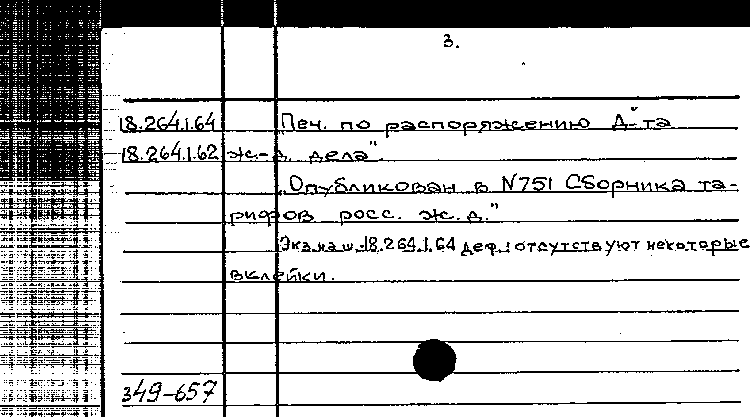 3.
18.264.1.64 "Печ. по распоряжению Д-та
18.264.1.62 ж.-д. дела".
"Опубликован в N751 Сборника та-
рифов росс. ж.д."
Экз. на ш. 18.264.1.64 деф.: отсутствуют некоторые
вклейки.
349-657